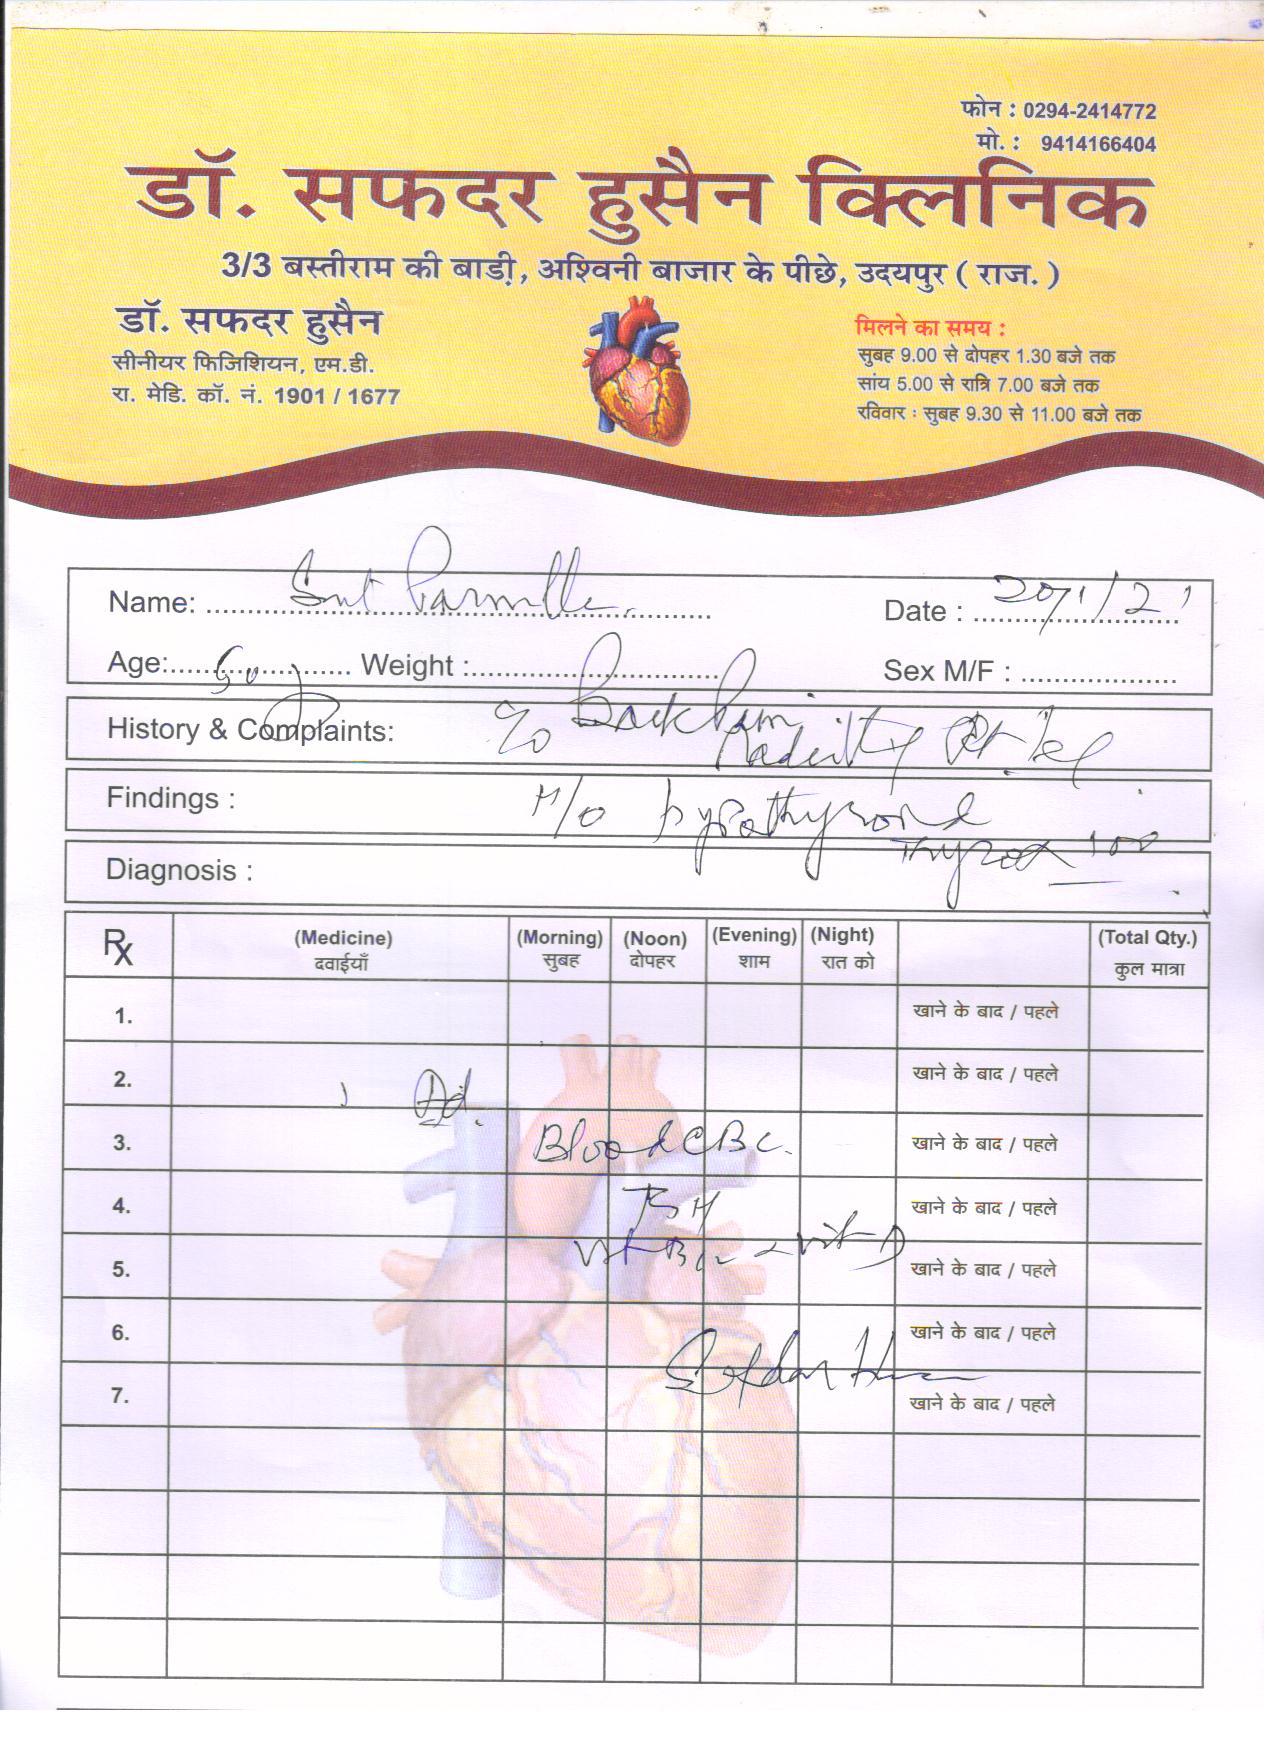 फोन : 0294-2414772
मो. : 9414166404
डॉ. सफदर हुसैन क्लिनिक
3/3 बस्तीराम की बाडी़, अश्विनी बाजार के पीछे, उदयपुर ( राज. )
डॉ. सफदर हुसैन
सीनीयर फिजिशियन, एम.डी.
रा. मेडि. कॉ. नं. 1901 / 1677
मिलने का समय :
सुबह 9.00 से दोपहर 1.30 बजे तक
सांय 5.00 से रात्रि 7.00 बजे तक
रविवार : सुबह 9.30 से 11.00 बजे तक
Name: Smt Date : 20/1/21
Age: Weight : Sex M/F :
History & Complaints: C/o Back Pain
Rt. leg
Findings : H/o hypothyroid
Thyrox 100
Diagnosis :
Rx (Medicine) (Morning) (Noon) (Evening) (Night) (Total Qty.)
दवाईयाँ सुबह दोपहर शाम रात को कुल मात्रा
1. खाने के बाद / पहले
2. खाने के बाद / पहले
Ad.
3. Blood CBC. खाने के बाद / पहले
4. TSH खाने के बाद / पहले
Vit B12 Vit D
5. खाने के बाद / पहले
6. खाने के बाद / पहले
Safdar
7. खाने के बाद / पहले